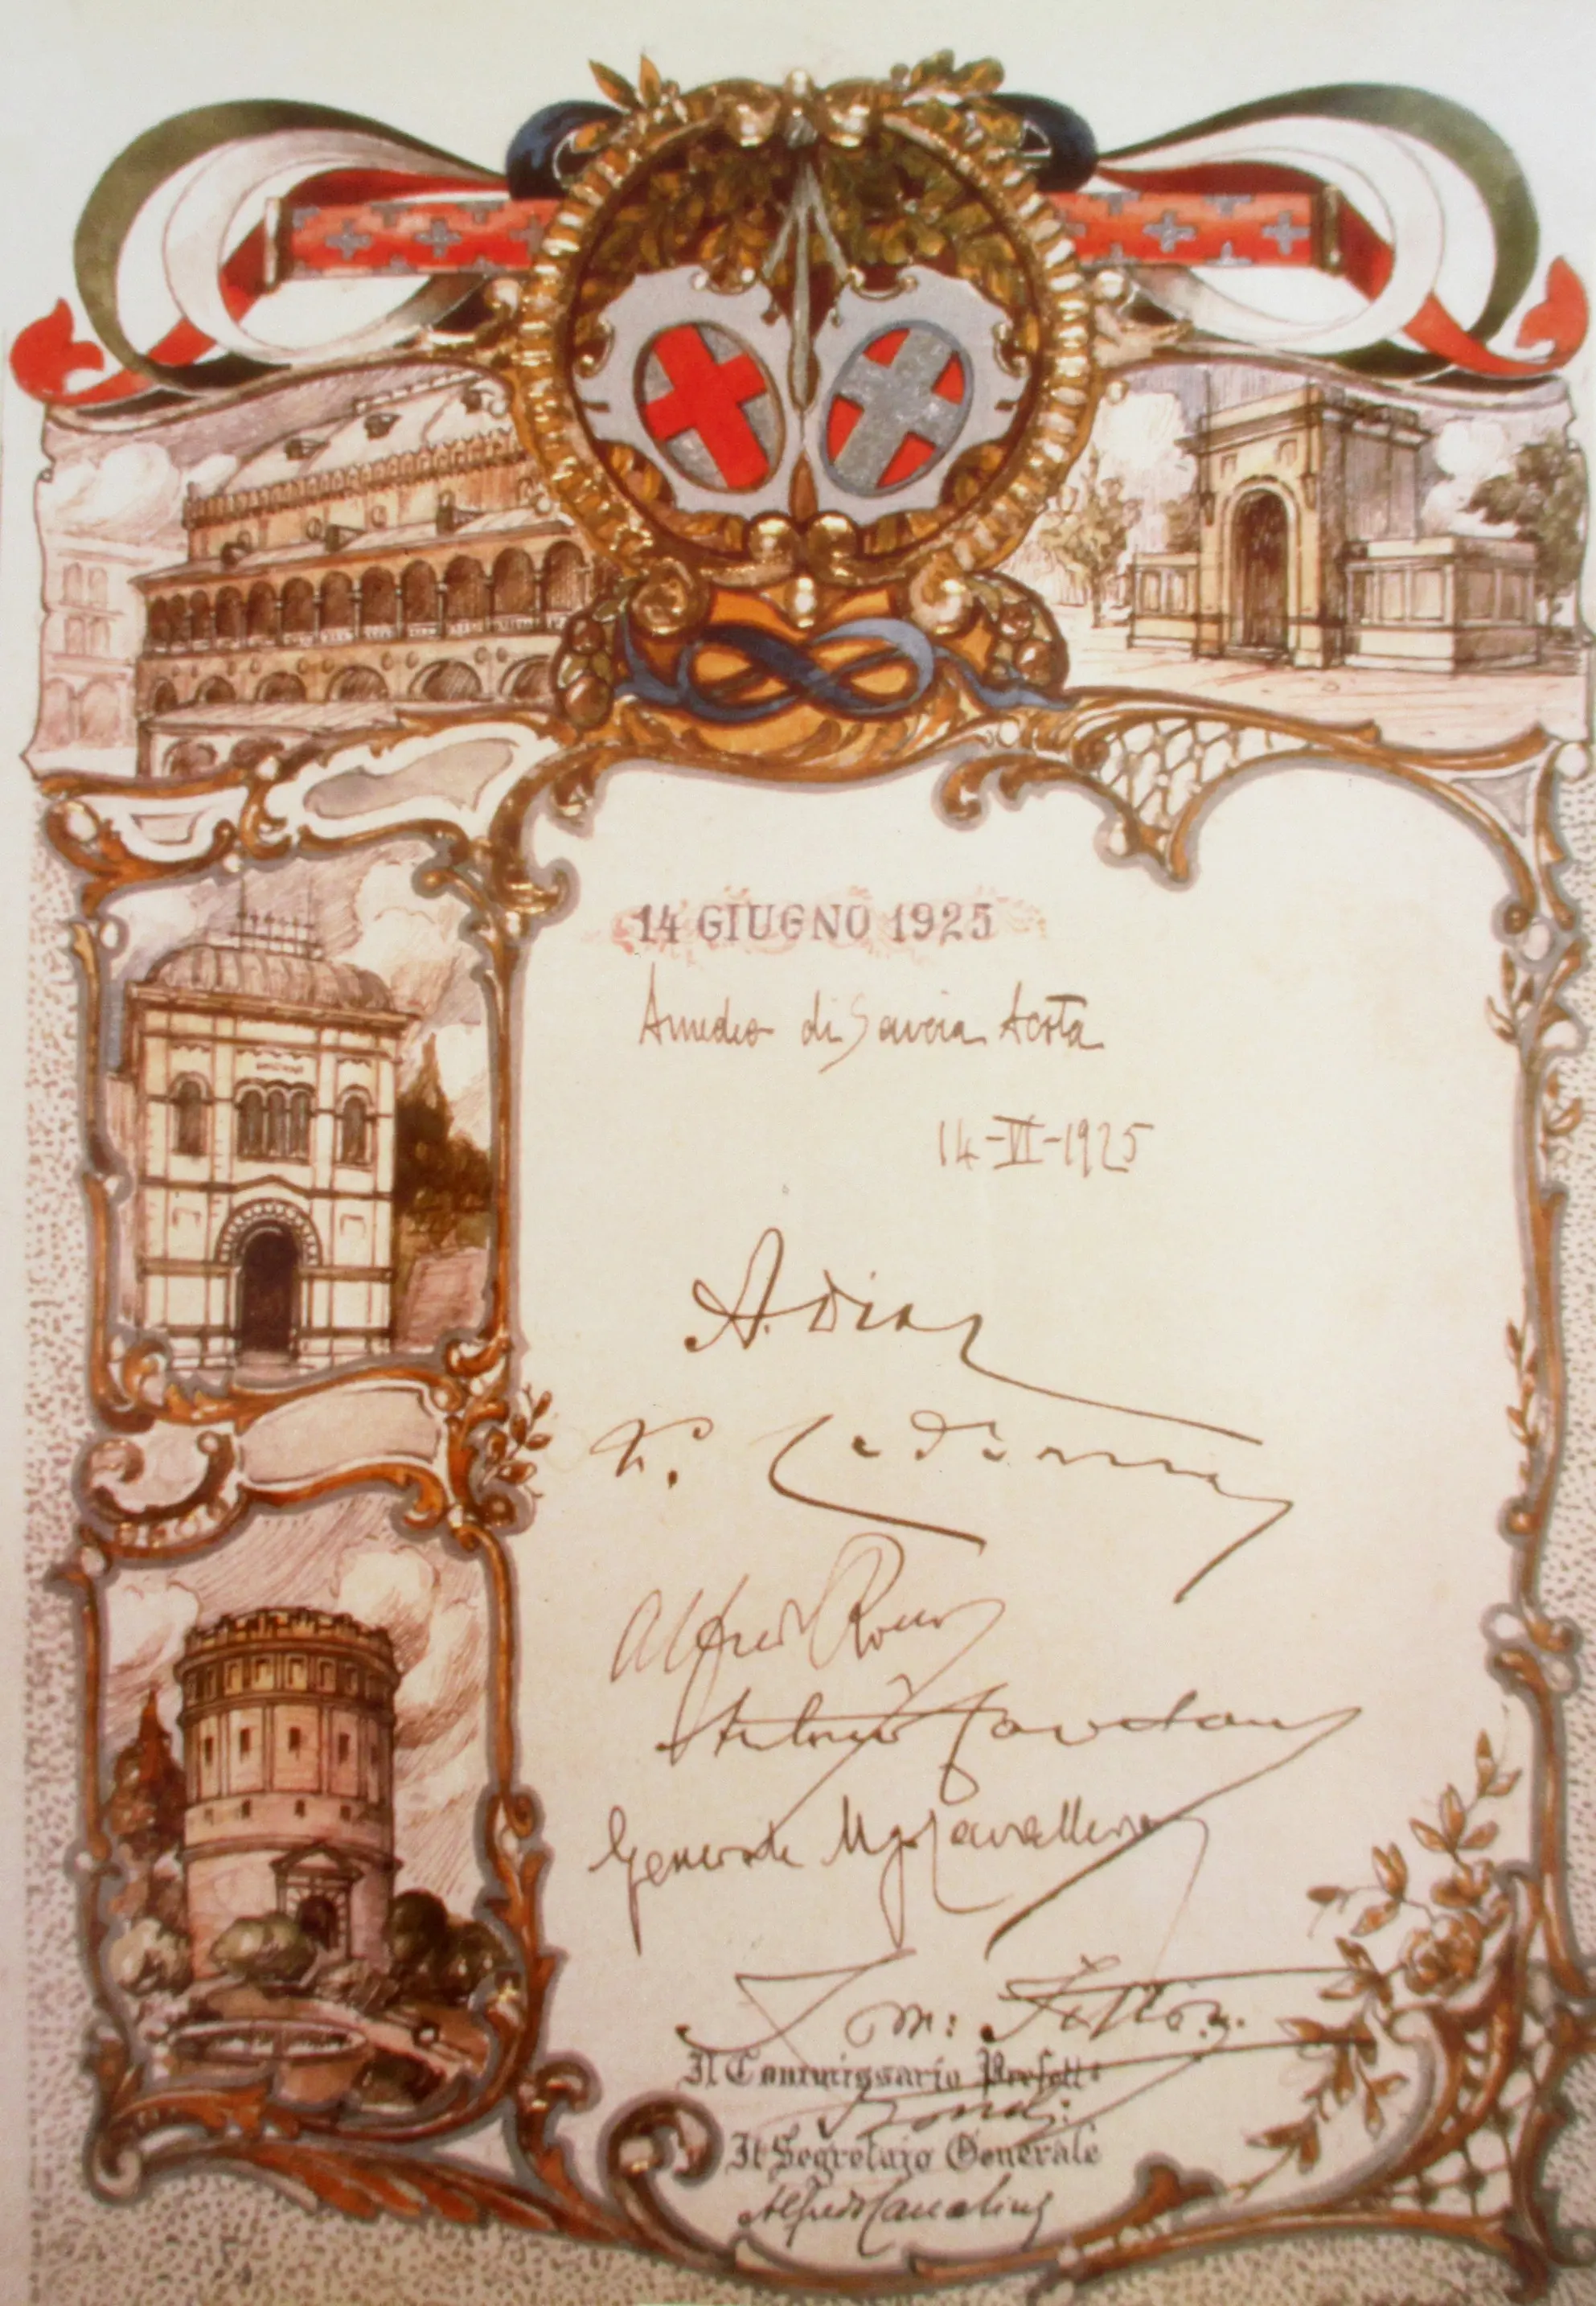 14 GIUGNO 1925
Amedeo di Savoia Aosta
14-VI-1925
A. Diaz
L. Cadorna
Alfredo
Antonio
Generale Ugo Cavallero
Il Commissario Prefett°
Il Segretaio Generale
Alfredo